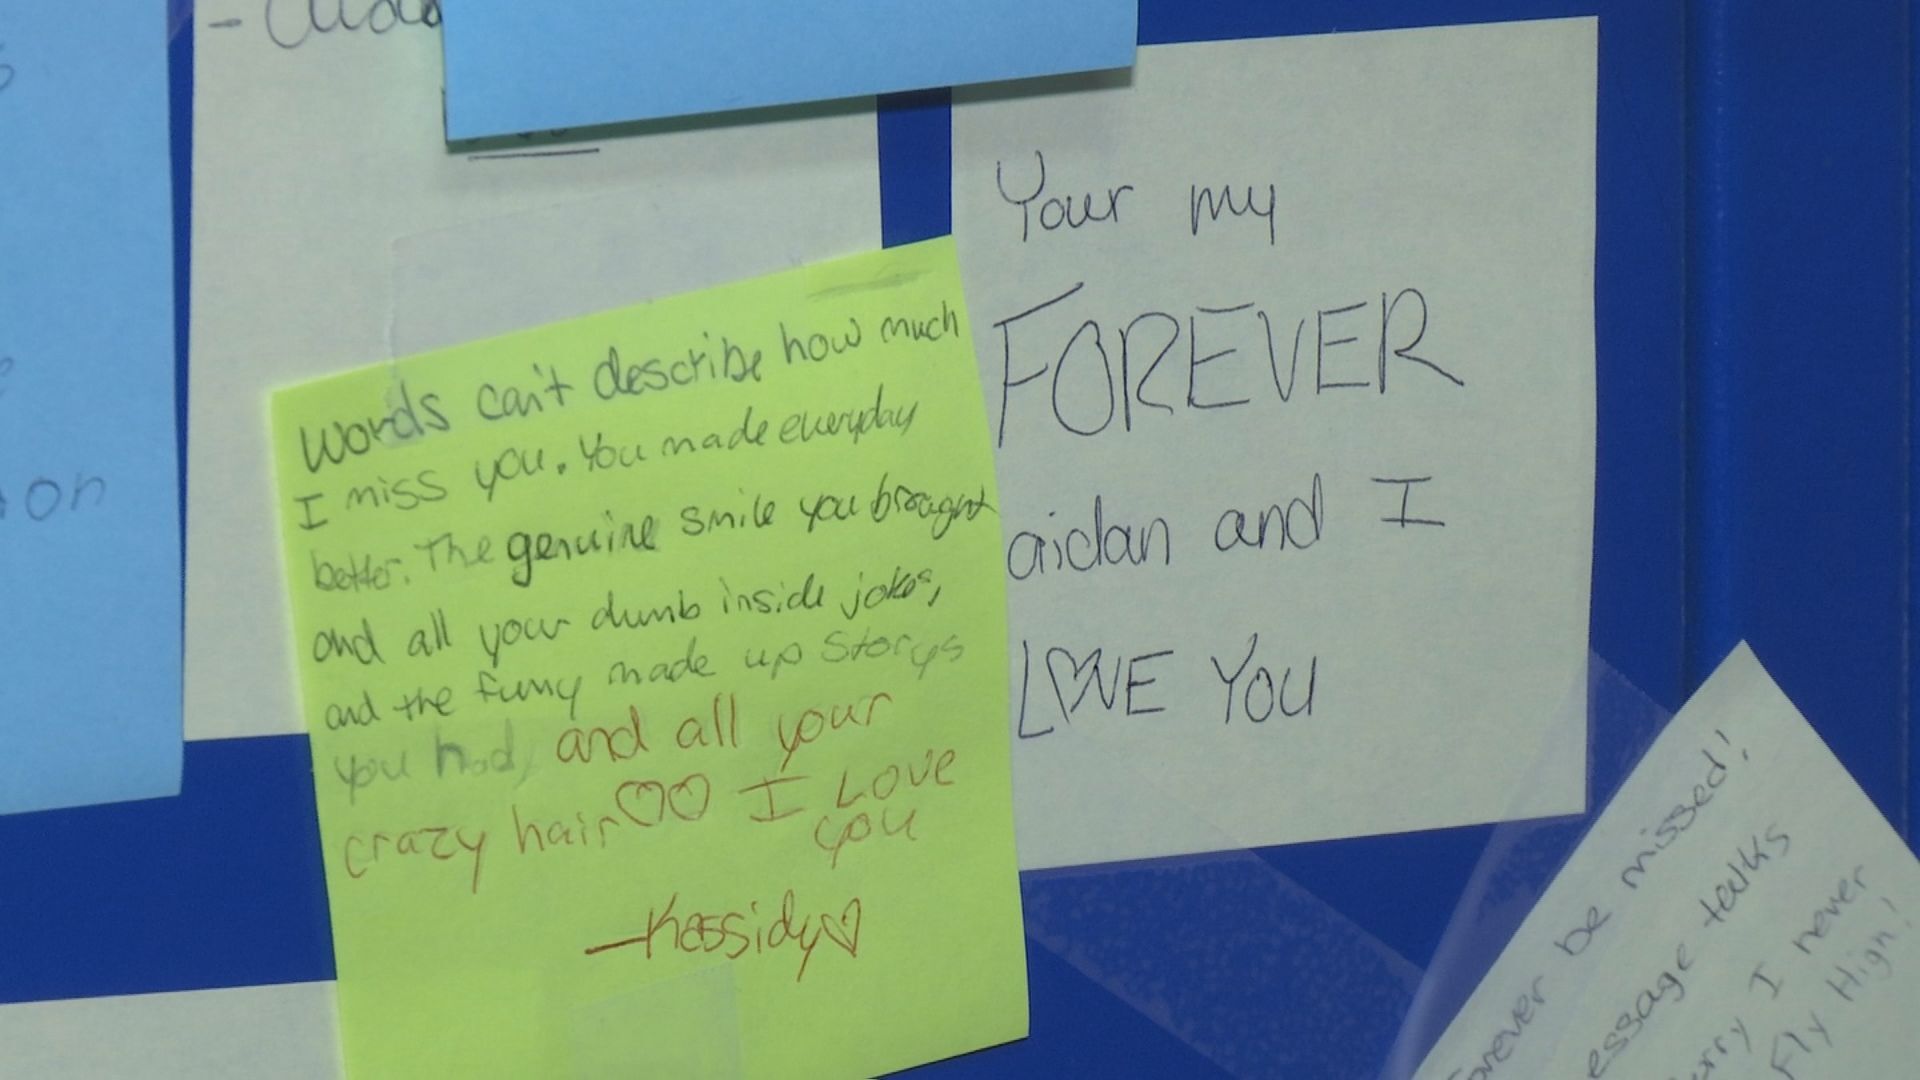 Words can't describe how much
I miss you. You made everyday
better. The genuine smile you brought
and all your dumb inside jokes,
and the funny made up Storys
you had, and all your
crazy hair♡♡ I LOVE
you
—Kassidy♡
Your my
FOREVER
aidan and I
LOVE YOU
on
Forever be missed!
essage talks
orry I never
Fly High!